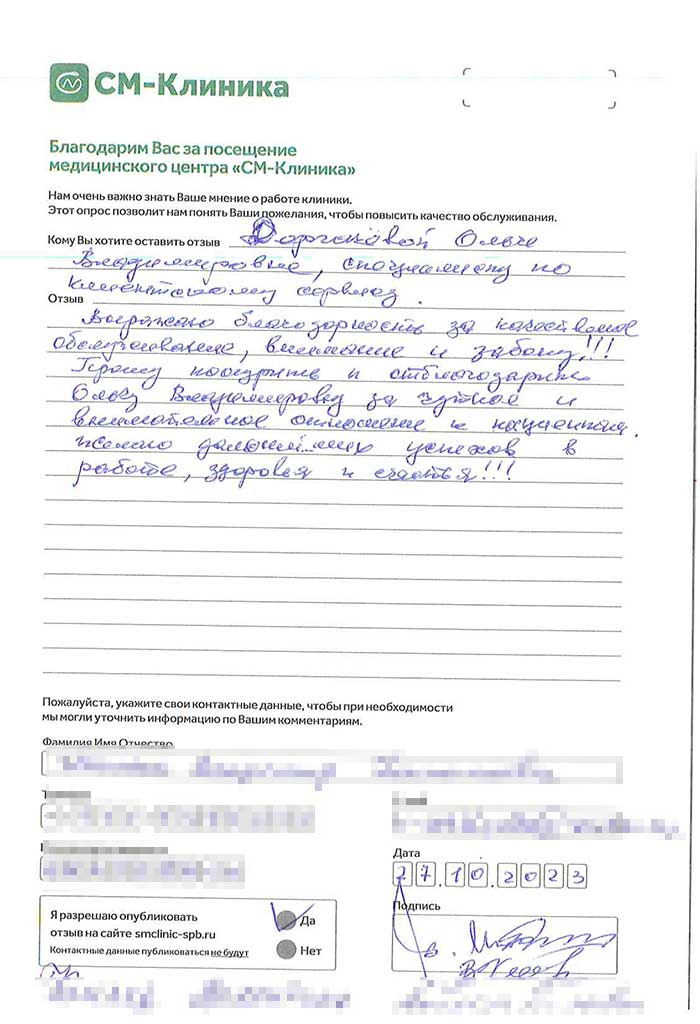 СМ-Клиника
Благодарим Вас за посещение
медицинского центра «СМ-Клиника»
Нам очень важно знать Ваше мнение о работе клиники.
Этот опрос позволит нам понять Ваши пожелания, чтобы повысить качество обслуживания.
Кому Вы хотите оставить отзыв Ольге
Владимировне, специалисту по
клиентскому сервису.
Отзыв
Выражаю благодарность за качественное
обслуживание, внимание и заботу!!!
Прошу поощрить и отблагодарить
Ольгу Владимировну за чуткое и
внимательное отношение к пациентам.
Желаю дальнейших успехов в
работе, здоровья и счастья!!!
Пожалуйста, укажите свои контактные данные, чтобы при необходимости
мы могли уточнить информацию по Вашим комментариям.
Фамилия Имя Отчество
Дата
27.10.2023
Я разрешаю опубликовать
отзыв на сайте smclinic-spb.ru
Контактные данные публиковаться не будут
Да
Нет
Подпись